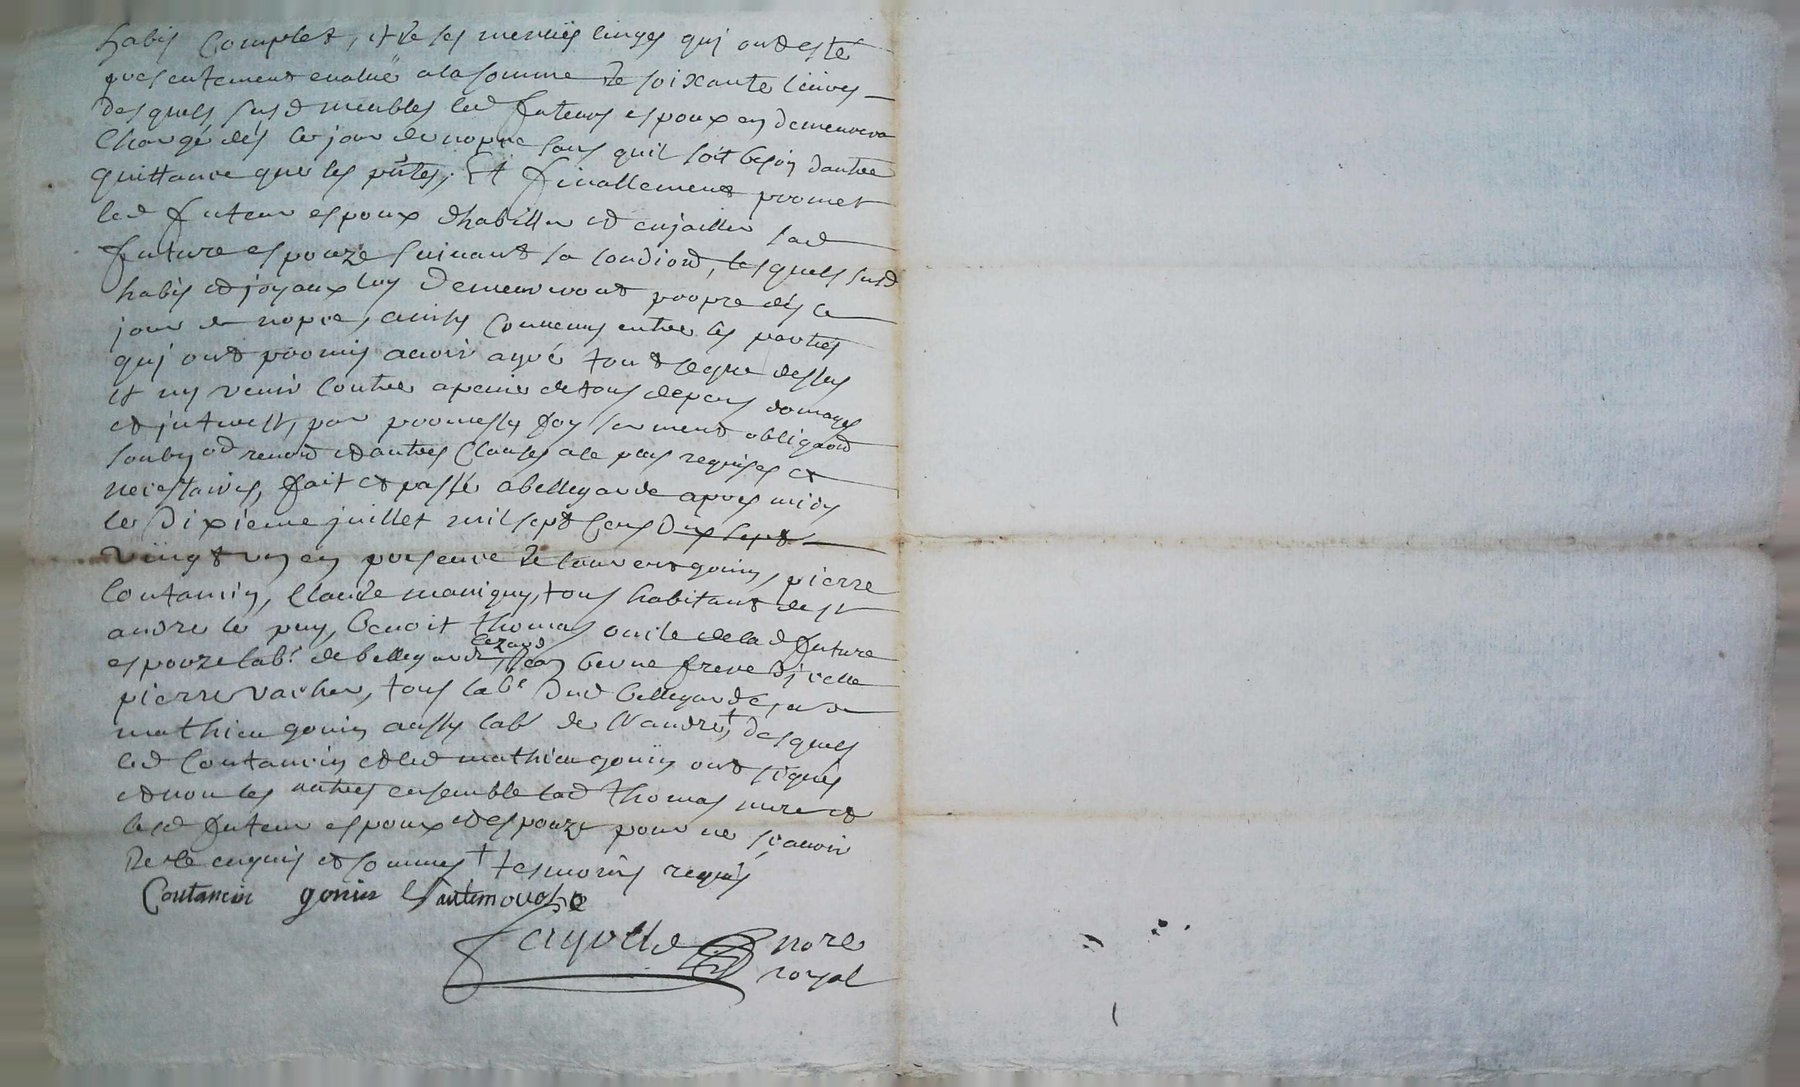 habis Complet, et de ses menües linges qui ont esté
presentement evalué a la somme de soixante livres
desquels susd meubles led futeur espoux en demeurera
Chargé dés le jour de nopce sans quil soit besoin dautre
quittance que les pntes, Et finallement promet
led futeur espoux dhabiller et enjailler sad
future espouze suivant sa condion, lesquels susd
habis et joyaux luy demeureront propre dés le
jour de nopce, ainsy Convenus entre les parties
qui ont promis avoir agré tout ce que dessus
et ny venir contre a peine de tous depens domages
et interest, par promesse foy serment obligaon
soubz on renon et autres Clauses a le pns requises et
necessaires, fait et passé a bellegarde apres midy
le Dixieme juillet mil sept Cens dix sept
vingt un en presence de gonin, pierre
Coutancin, Claude manigny, tous habitant de st
andre le puy, benoit thomas oncle de lad future
espouze labr de bellegarde, Jean berne frere dicelle
pierre vacher, tous labr dud bellegarde, et de
mathieu gonin aussy labr de st andre, desquels
led Coutancin et led mathieu gonin ont signés
et non les autres ensemble lad thomas mere et
lesd futeur espoux et espouze pour ne scavoir
de ce enquis et sommes + tesmoins requis
Coutancin gonin
nore
royal